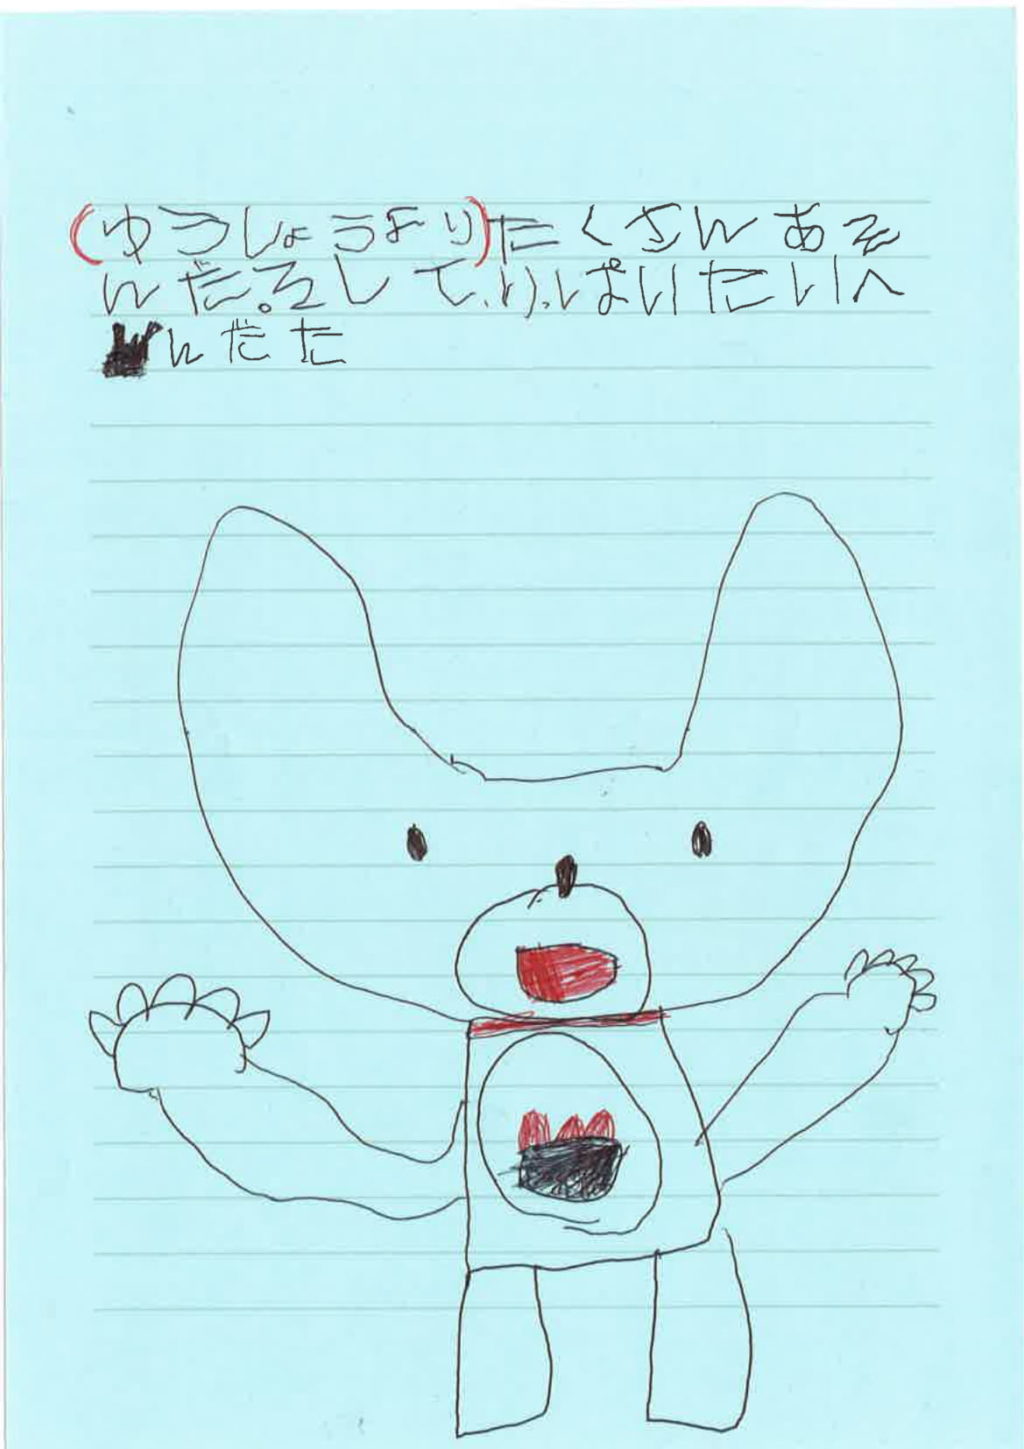 (ゆうしょうより)たくさんあそ
んだ。そして、いっぱいたいへ
んだた